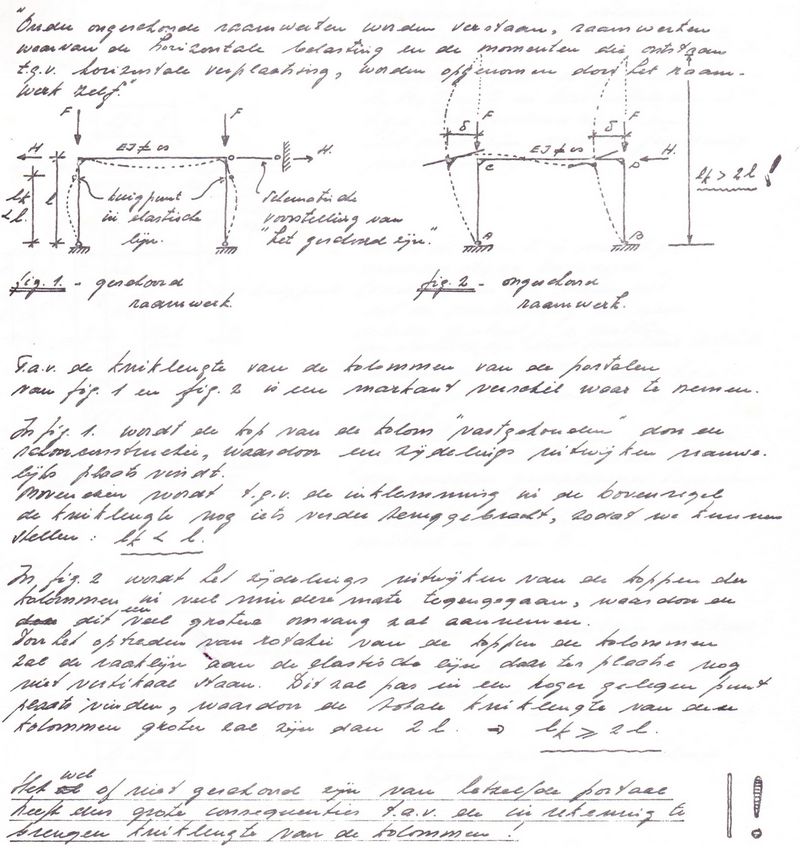 "Onder ongeschoorde raamwerken worden verstaan, raamwerken
waarvan de horizontale belasting en de momenten die ontstaan
t.g.v. horizontale verplaatsing, worden opgenomen door het raam-
werk zelf."
F F
H EI ≠ ∞ H.
lk < l. l
buigpunt
in elastische
lijn.
Schematische
voorstelling van
"het geschoord zijn."
fig. 1. - geschoord
raamwerk.
δ F δ F
EI ≠ ∞ H.
C D
A B
lk > 2l !
fig. 2 - ongeschoord
raamwerk.
T.a.v. de kniklengte van de kolommen van de portalen
van fig. 1 en fig. 2 is een markant verschil waar te nemen.
In fig. 1. wordt de top van de kolom "vastgehouden" door de
schoorconstructie, waardoor een zijdelings uitwijken nauwe-
lijks plaats vindt.
Bovendien wordt t.g.v. de inklemming in de bovenregel
de kniklengte nog iets verder teruggebracht, zodat we kunnen
stellen: lk < l.
In fig. 2 wordt het zijdelings uitwijken van de toppen der
kolommen in veel mindere mate tegengegaan, waardoor
dit een veel grotere omvang zal aannemen.
Door het optreden van rotatie van de toppen de kolommen
zal de raaklijn aan de elastische lijn daar ter plaatse nog
niet vertikaal staan. Dit zal pas in een hoger gelegen punt
plaats vinden, waardoor de totale kniklengte van deze
kolommen groter zal zijn dan 2 l. ⇒ lk ≥ 2 l.
Het wel of niet geschoord zijn van hetzelfde portaal
heeft dus grote consequenties t.a.v. de in rekening te
brengen kniklengte van de kolommen! !